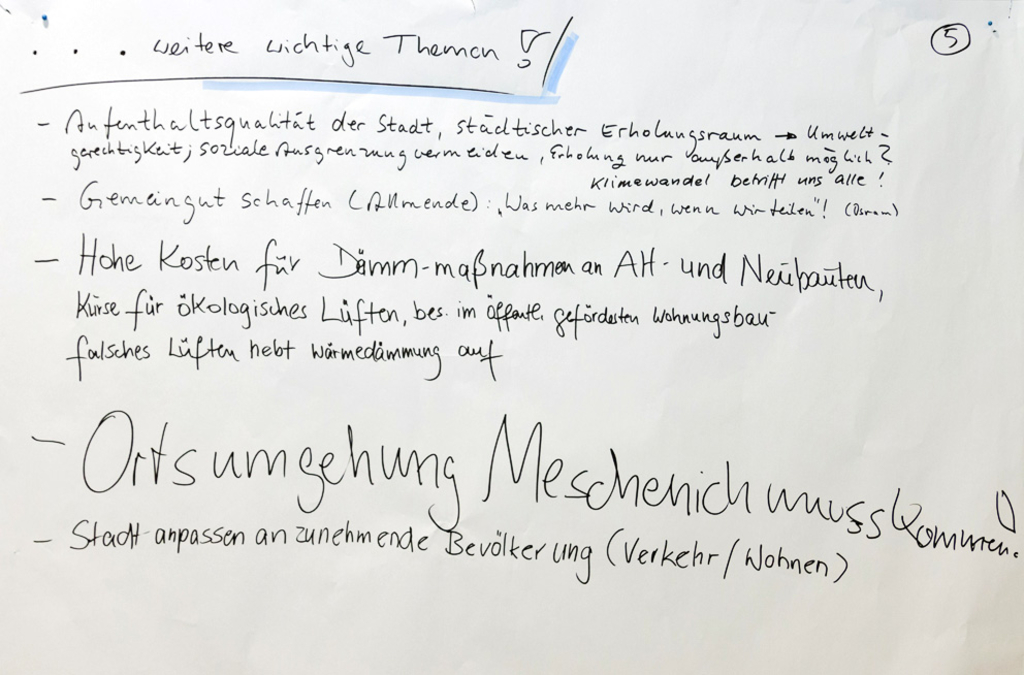 . . . weitere wichtige Themen ?!
5
- Aufenthaltsqualität der Stadt, städtischer Erholungsraum → Umwelt-
gerechtigkeit; soziale Ausgrenzung vermeiden, Erholung nur außerhalb möglich?
Klimewandel betrifft uns alle!
- Gemeingut schaffen (Allmende): „Was mehr wird, wenn wir teilen"! (Osrom)
- Hohe Kosten für Dämm-maßnahmen an Alt- und Neubauten,
Kurse für ökologisches Lüften, bes. im öffentl. geförderten Wohnungsbau-
falsches Lüften hebt Wärmedämmung auf
- Ortsumgehung Meschenich muss kommen!
- Stadt anpassen an zunehmende Bevölkerung (Verkehr/Wohnen)